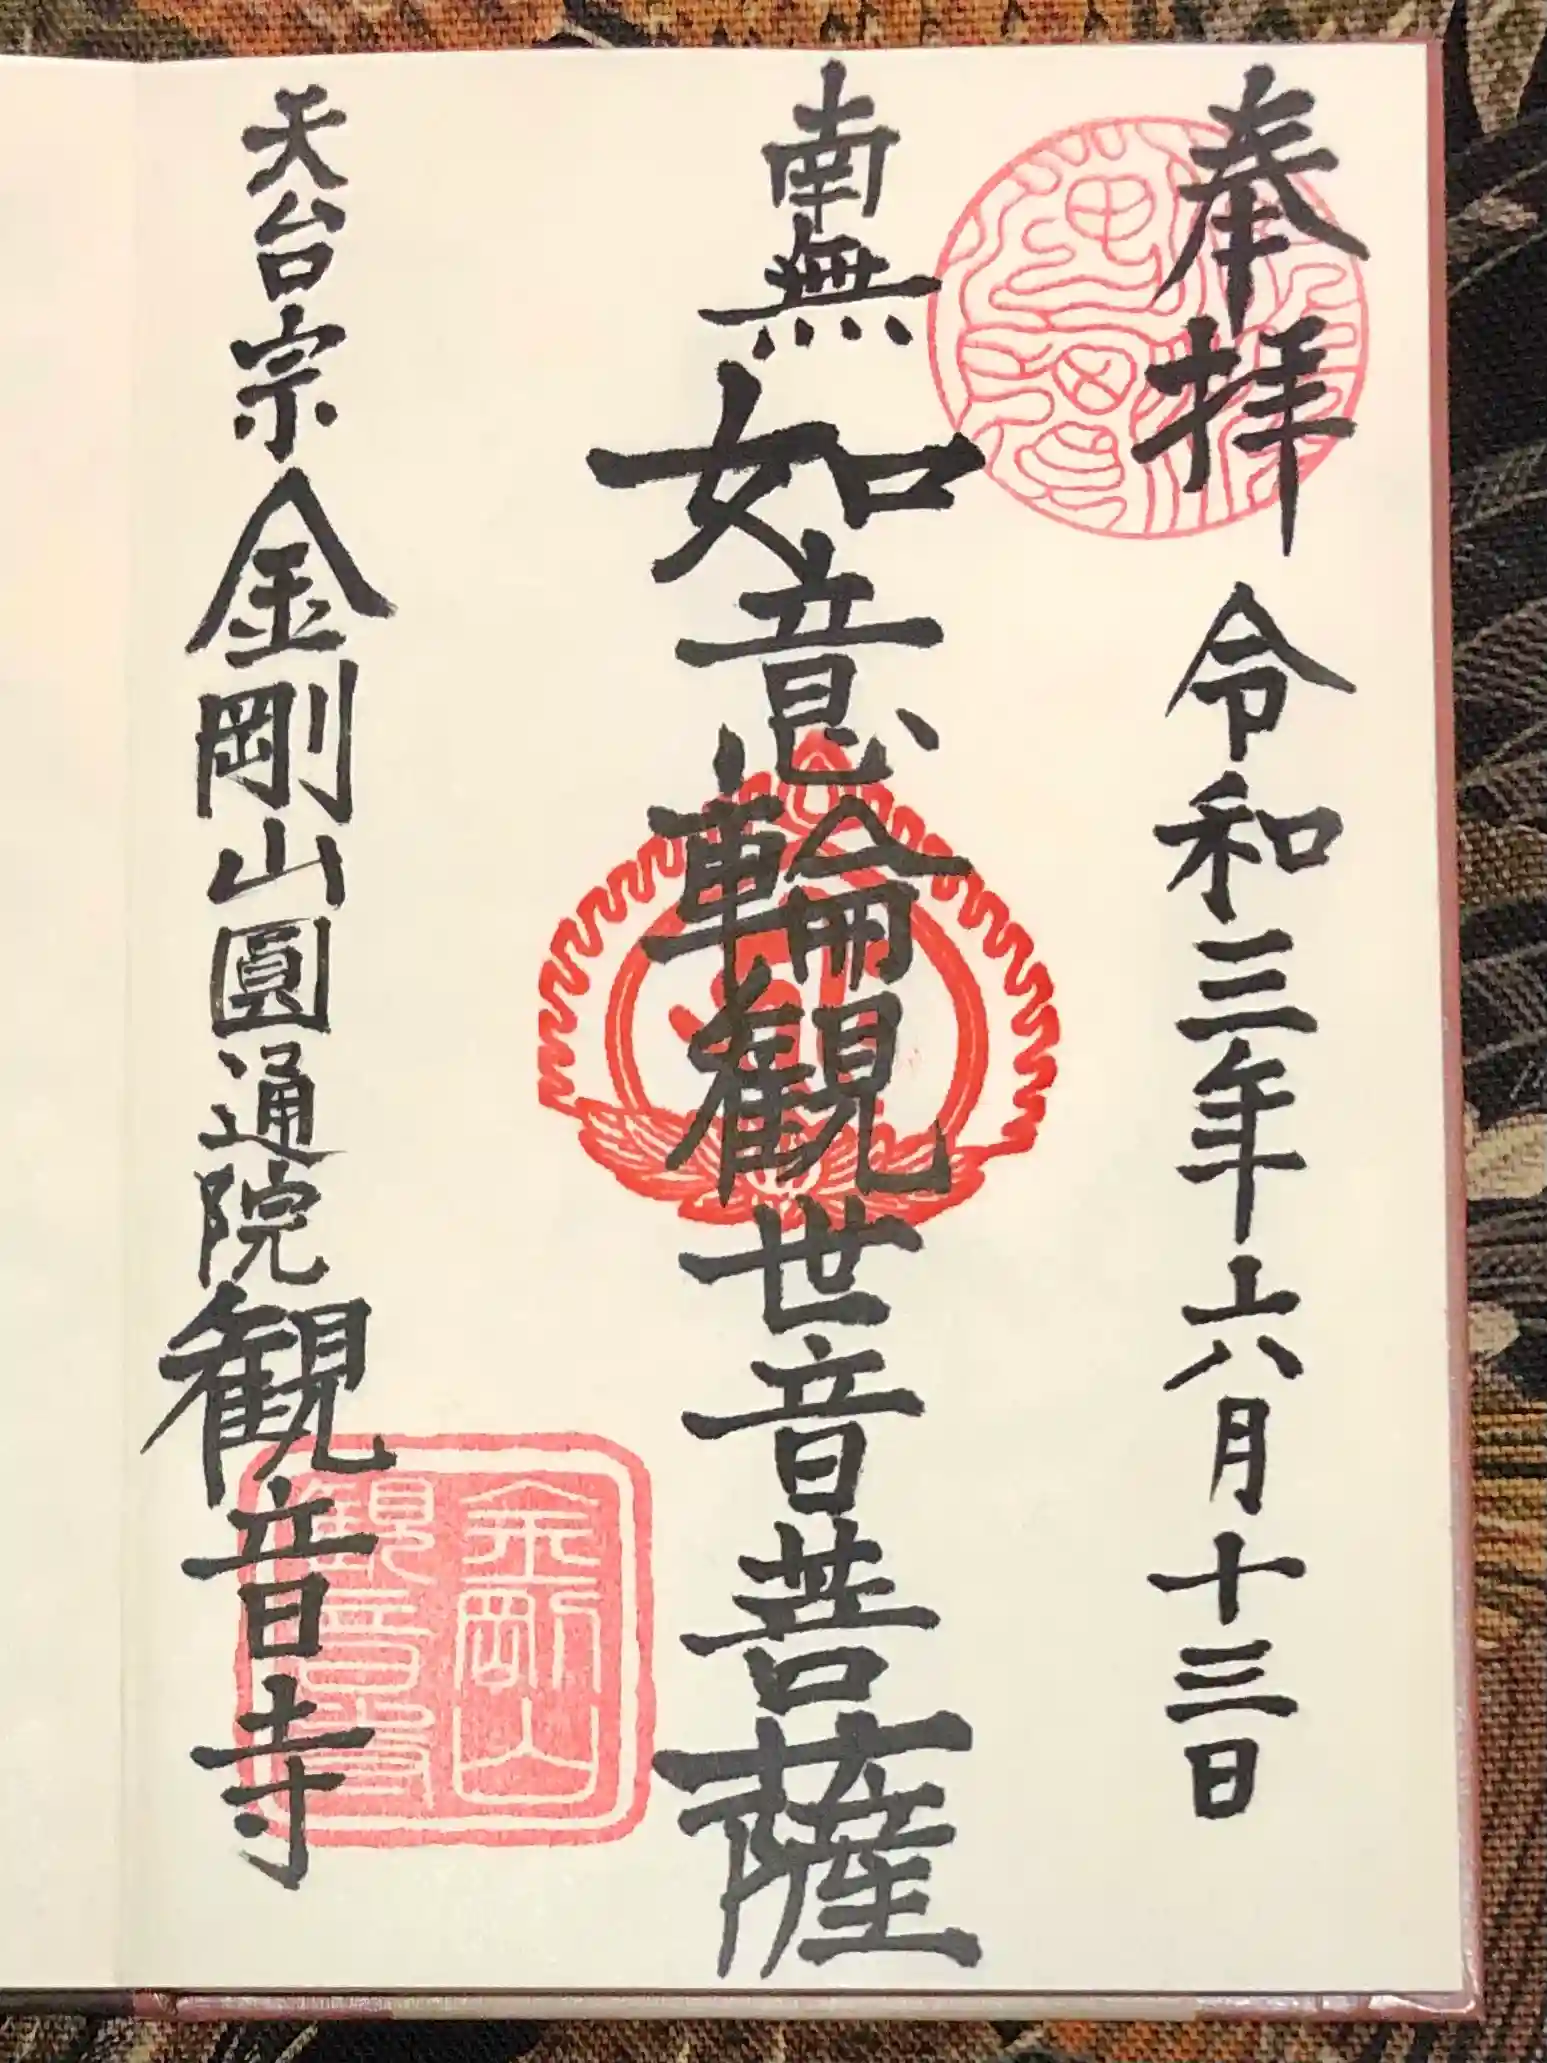 奉拝 令和三年六月十三日
南無如意輪觀世音菩薩
天台宗金剛山圓通院観音寺
金剛山
観音寺